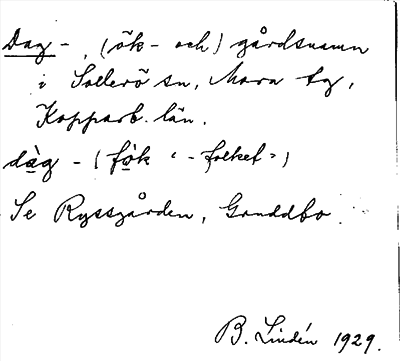 Dag -, (ök - och) gårdsnamn
i Sollerö sn, Mora tg,
Kopparb. län.
dàg - (fòk " - folket")
Se Ryssgården, Gruddbo.
B. Lindén 1929.